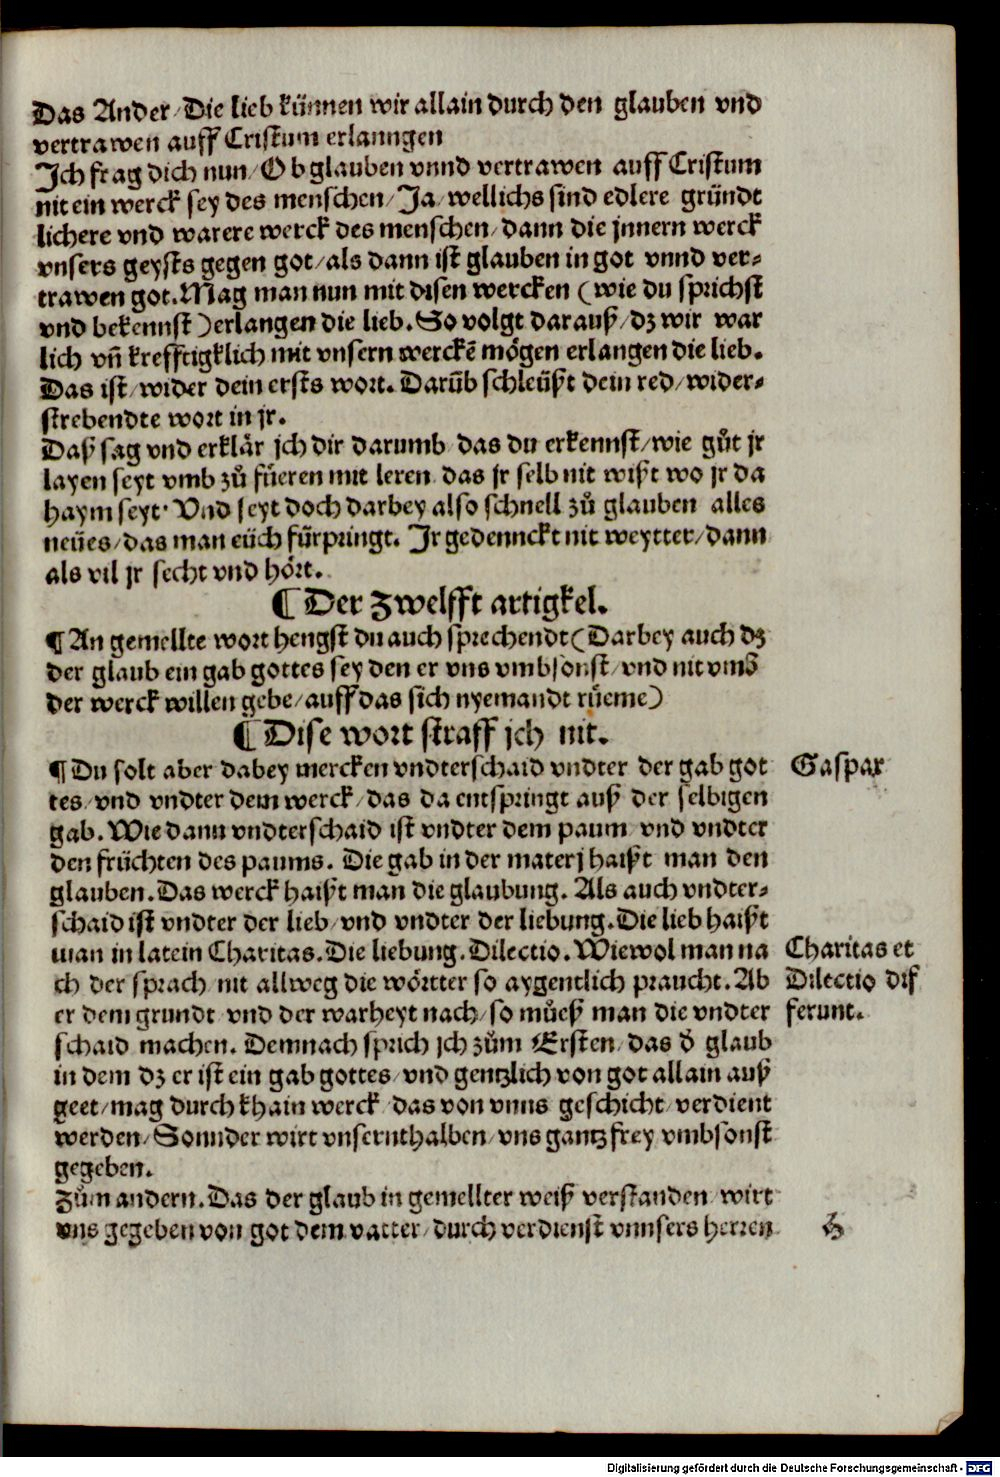 Das Ander/Die lieb künnen wir allain durch den glauben vnd
vertrawen auff Cristum erlanngen
Jch frag dich nun/Ob glauben vnnd vertrawen auff Cristum
nit ein werck sey des menschen/Ja/wellichs sind edlere gründt
lichere vnd warere werck des menschen/dann die jnnern werck
vnsers geysts gegen got/als dann ist glauben in got vnnd ver-
trawen got.Mag man nun mit disen wercken (wie du sprichst
vnd bekennst)erlangen die lieb.So volgt darauß/dz wir war
lich vñ krefftigklich mit vnsern werckē mögen erlangen die lieb.
Das ist/wider dein ersts wort.Darūb schleüßt dein red/wider-
strebendte wort in jr.
Daß sag vnd erklär jch dir darumb/das du erkennst/wie gůt jr
layen seyt vmb zů füeren mit leren/das jr selb nit wißt wo jr da
haym seyt.Vnd seyt doch darbey also schnell zů glauben alles
neües/das man eüch fürpringt.Jr gedennckt nit weytter/dann
als vil jr secht vnd hört.
¶Der Zwelfft artigkel.
¶An gemellte wort hengst du auch sprechendt(Darbey auch dz
der glaub ein gab gottes sey den er vns vmbsonst/vnd nit vmb
der werck willen gebe/auff das sich nyemandt rüeme)
¶Dise wort straff jch nit.
¶Du solt aber dabey mercken vndterschaid vndter der gab got
Gaspax
tes/vnd vndter dem werck/das da entspringt auß der selbigen
gab.Wie dann vndterschaid ist vndter dem paum/vnd vndter
den früchten des paums.Die gab in der materj haißt man den
glauben.Das werck haißt man die glaubung.Als auch vndter-
schaid ist vndter der lieb/vnd vndter der liebung.Die lieb haißt
man in latein Charitas.Die liebung.Dilectio.Wiewol man na
Charitas et
ch der sprach nit allweg die wörtter so aygentlich praucht.Ab
Dilectio dif
er dem grundt vnd der warheyt nach/so můeß man die vndter
ferunt.
schaid machen.Demnach sprich jch zům Ersten/das d' glaub
in dem dz er ist ein gab gottes/vnd gentzlich von got allain auß
geet/mag durch khain werck/das von vnns geschicht/verdient
werden/Sonnder wirt vnsernthalben/vns gantz frey vmbsonst
gegeben.
Zům andern.Das der glaub in gemellter weiß verstanden/wirt
vns gegeben von got dem vatter/durch verdienst vnnsers herren
Digitalisierung gefördert durch die Deutsche Forschungsgemeinschaft - DFG